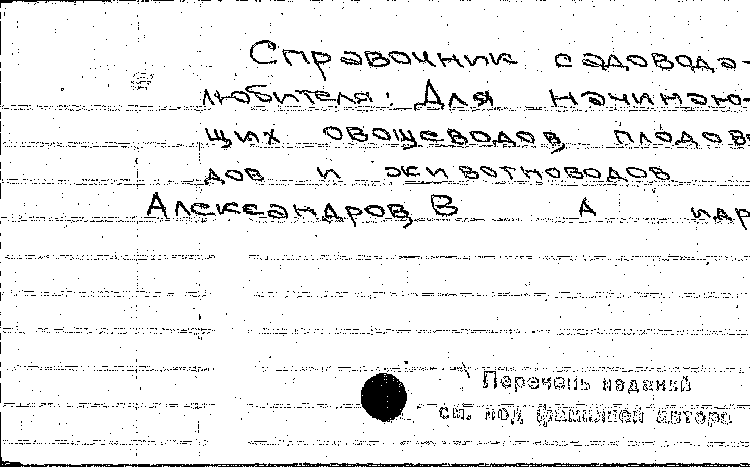 Справочник садовода-
любителя: Для начинаю-
щих овощеводов, плодово-
дов и животноводов
Александров, В А идр
Перечень изданий
см. под фамилией автора